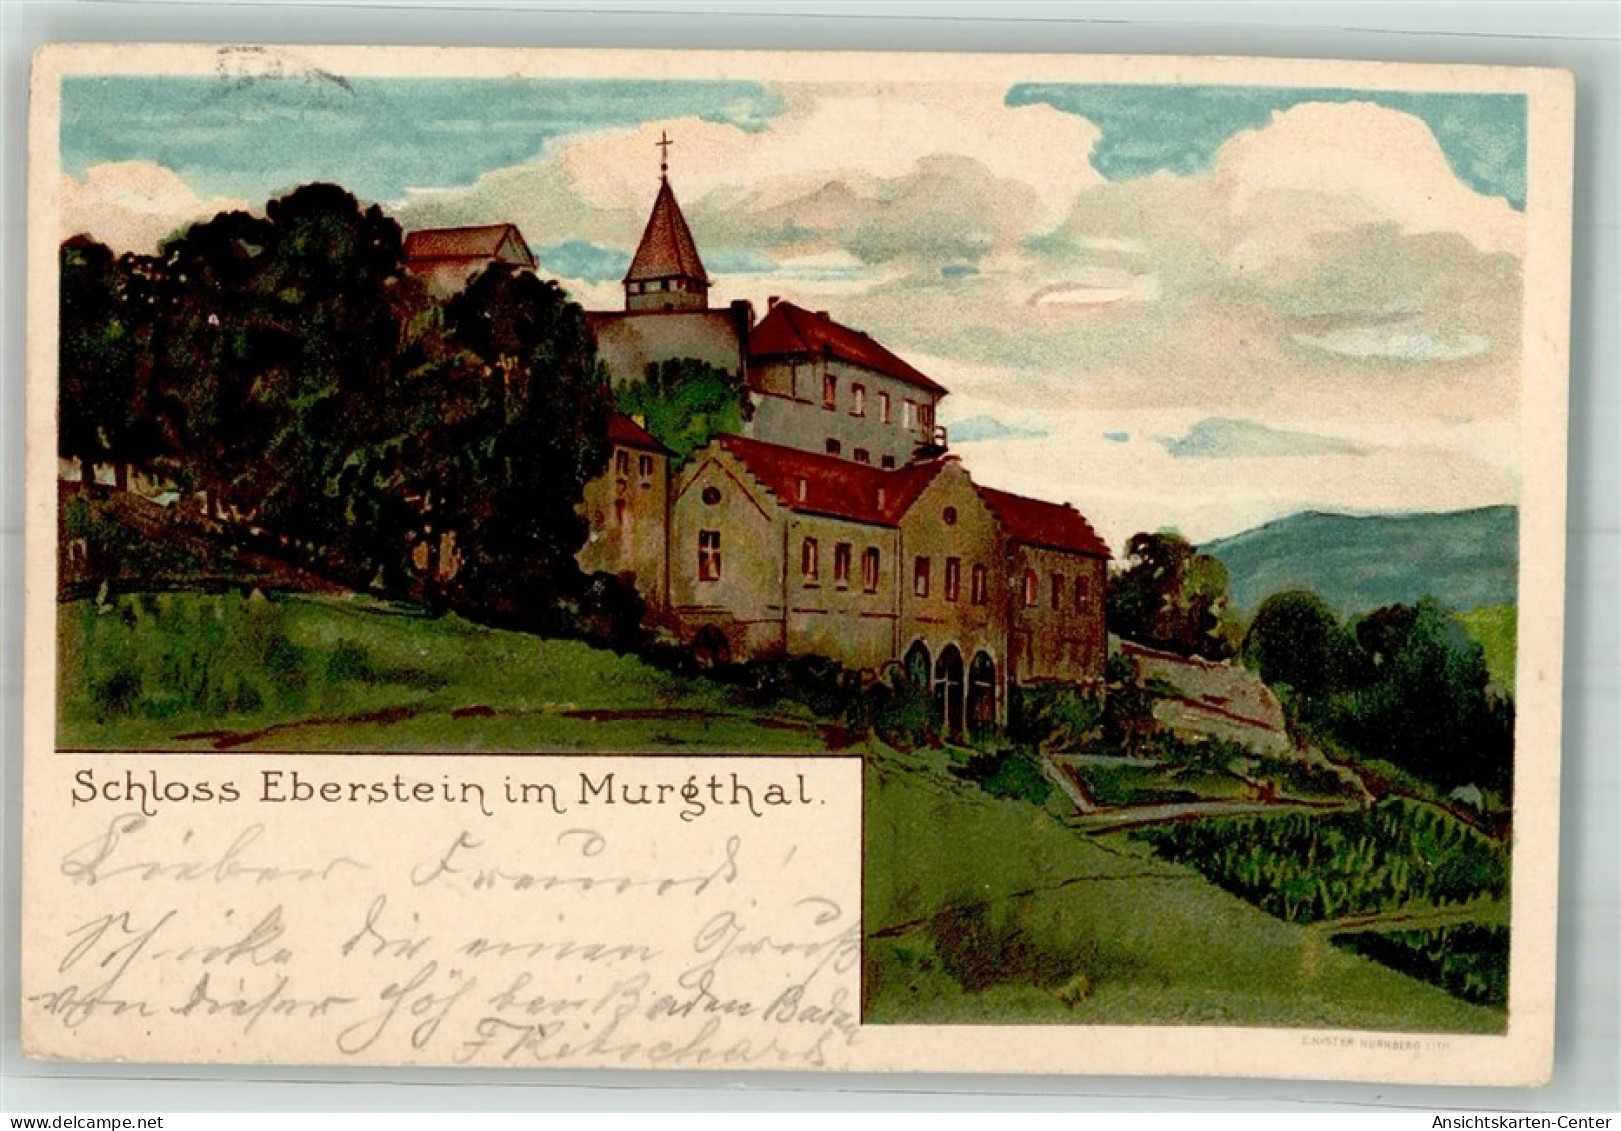 Schloss Eberstein im Murgthal.
Lieber Freund!
Schicke dir einen Gruß
von dieser Höh bei Baden Baden
F Ritschard
E. NISTER NÜRNBERG LITH.
Ansichtskarten-Center